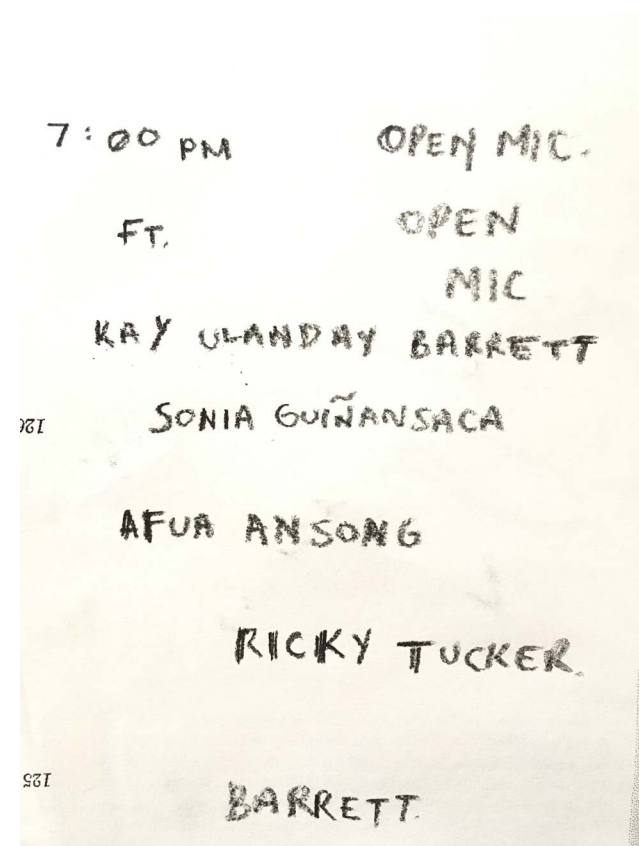 7:00 PM OPEN MIC.
FT. OPEN
MIC
KAY ULANDAY BARRETT
SONIA GUIÑANSACA
126
AFUA ANSONG
RICKY TUCKER.
125
BARRETT.